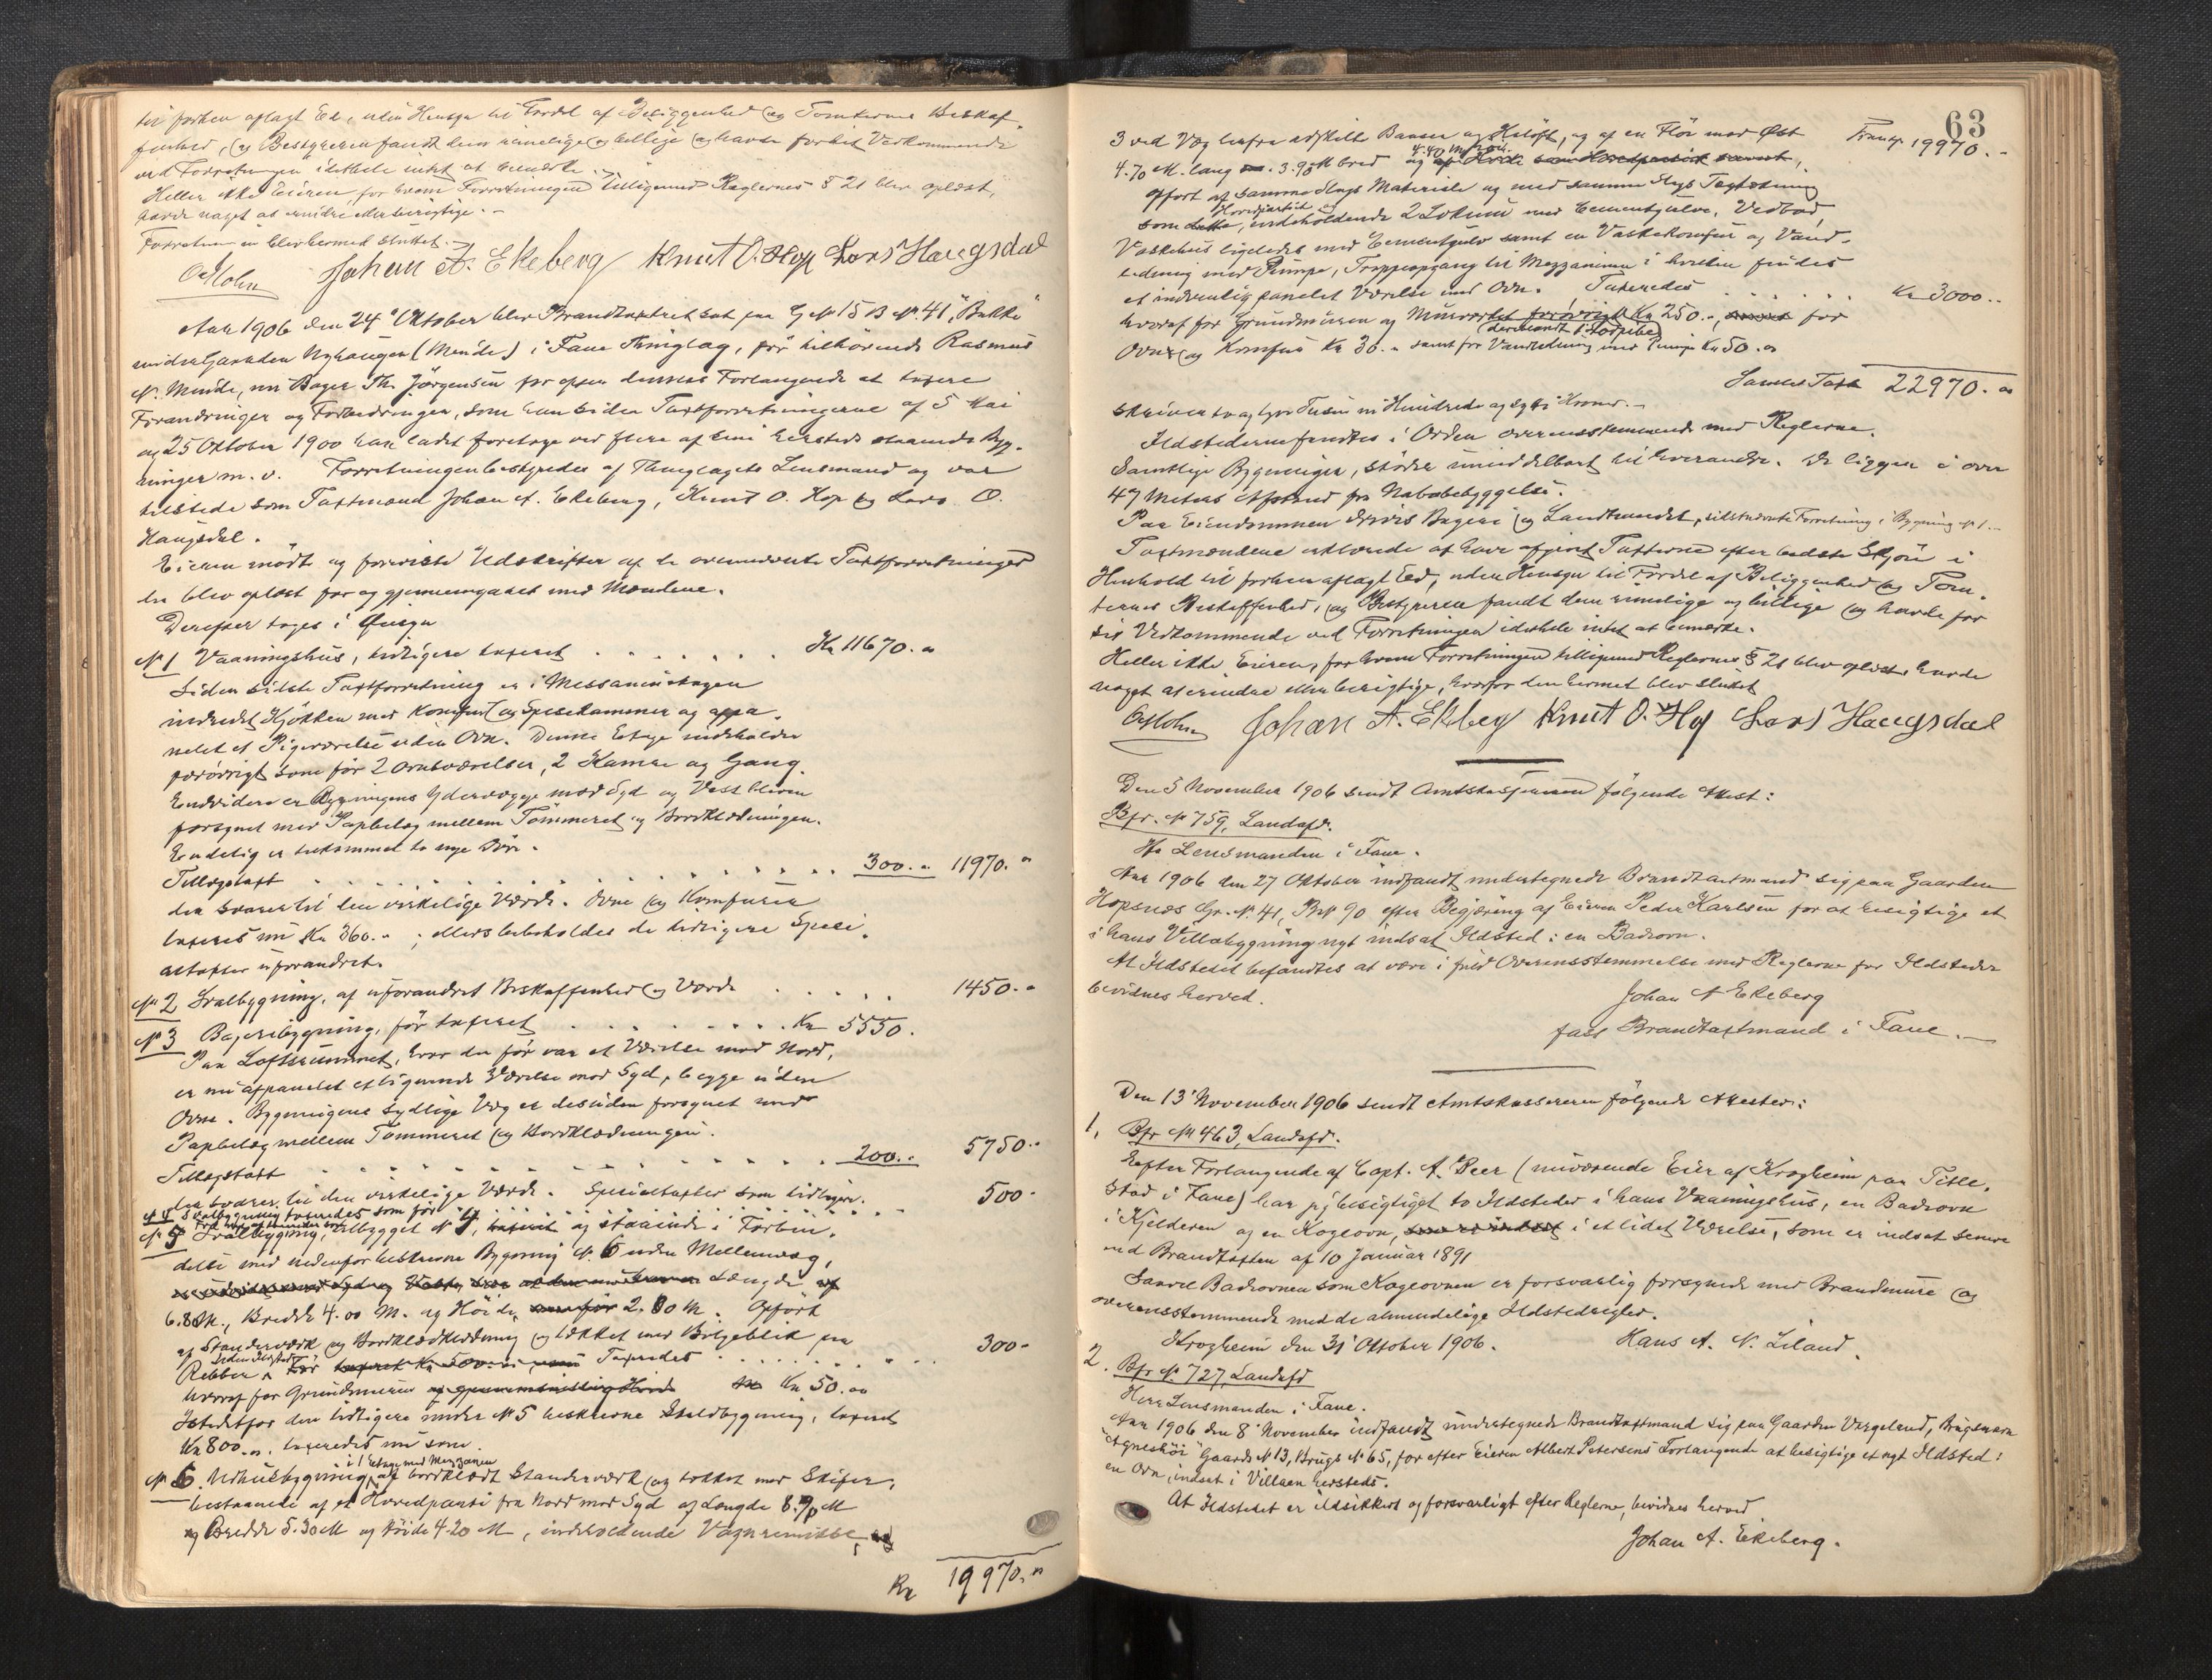 til forhen aflagt Ed, uden Hensyn til Fordel af Beliggenhed og Tomternes Beskaf-
fenhed, og Bestyreren fandt dem rimelige og billige og havde forsit Vedkommende
ved Forretningen idethele intet at bemærke.
Heller ikke Eieren, for hvem Forretningen tilligemed Reglernes § 21 blev oplæst,
havde noget at erindre eller berigtige. -
Forretningen blev hermed sluttet.
O. Holm Johan A. Ekeberg Knut O. Hop Lars Haugsdal
Aar 1906 den 24' Oktober blev Brandtaxtret sat paa G No 15 B No 41, "Bakke"
under Gaarden Nyhaugen (Mende) i Fane Thinglag, før tilhørende Rasmus
N. Mende, nu Bager Th. Jörgensen for efter dennes Forlangende at taxere
Forandringer og Forbedringer, som han siden Taxtforretningerne af 5 Mai
og 25 Oktober 1900 har ladet foretage ved flere af sine hersteds staaende Byg-
ninger m. v. Forretningen bestyredes af Thinglagets Lensmand og var
tilstede som Taxtmænd Johan A. Ekeberg, Knut O. Hop og Lars O.
Haugsdal.
Eieren mødte og foreviste Udskrifter af de ovennævnte Taxtforretninger
der blev oplæst for og gjennemgaaet med Mændene.
Derefter toges i Øiesyn
No 1 Vaaningshus, tidligere taxeret . . . . . . Kr 11670. "
Siden sidste Taxtforretning er i Messaninetagen
indredet Kjøkken med Komfur og Spisekammer og afpa-
nelet et Pigeværelse uden Ovn. Denne Etage indeholder
forøvrigt som før 2 Ovnsværelser, 2 Kamre og Gang.
Endvidere er Bygningens Ydervægge mod Syd og Vest bleven
forsynet med Papbelæg mellem Tømmeret og Bordklædningen.
Endelig er tilkommet to nye Döre.
Tillægstaxt . . . . . . 300. " 11970. "
der svarer til den virkelige Værdi. Ovne og Komfurer
taxeres nu Kr 360. " ; ellers beholdes de tidligere Speci-
altaxter uforandret.
No 2 Svalbygning, af uforandret Beskaffenhed og Værdi . . . . 1450. "
No 3 Bageribygning, før taxeret . . . . . . Kr 5550.
Paa Loftsrummet, hvor der før var et Værelse mod Nord,
er nu afpanelet et lignende Værelse mod Syd, begge uden
Ovne. Bygningens sydlige Væg er desuden forsynet med
Papbelæg mellem Tømmeret og Bordklædningen.
Tillægstaxt . . . . . . 200. " 5750. "
der svarer til den virkelige Værdi. Specialtaxter som tidligere.
No 4 Svalbygning taxeredes som før . . . . . . 500 -
No 5 Svalbygning, tilbygget No 4, og staaende i Forbin-
delse med nedenfor beskrevne Bygning No 6 uden Mellemvæg,
Længde
6.80 M., Bredde 4.00 M. og Höide 2.80 M. Opfört
af Standerværk og Bordklædning og tækket med Bölgeblik paa
Ribber, Taxeredes . . . . . . 300 -
hvoraf for Grundmuren Kr 50. "
Istedetfor den tidligere under No 5 beskrevne Staldbygning, taxeret
Kr 800. ", taxeredes nu som
No 6. Udhusbygning i 1 Etage med Mezzanin af bordklædt Standerværk og tækket med Skifer,
bestaaende af et Hovedparti fra Nord mod Syd af Længde 8.90 M
og Bredde 5.30 M og Höide 4.20 M, indeholdende Vognremisse,
Kr 19970. "
63
3 ved Væg herfra adskilte Baaser og Höloft, og af en Flöi mod Öst
Transp 19970. -
4.70 M. lang 3.90 M bred og 4.40 M höi,
opfört af samme Slags Materiale og med samme Slags Tagtækning
som Hovedpartiet og indeholdende 2 Lokum med Cementgulve, Vedbod,
Vaskehus ligeledes med Cementgulv samt en Vaskekomfur og Vand-
ledning med Pumpe, Trappeopgang til Mezzaninen i hvilken findes
et indvendig panelet Værelse med Ovn. Taxeredes . . . . . . Kr 3000. "
hvoraf for Grundmuren og Murværket forøvrigt Kr 250. ", for
Ovne og Komfur Kr 30. " samt for Vandledning med Pumpe Kr 50. "
Samlet Taxt 22970. "
skriver to og tyve Tusin ni Hundrede og sytti Kroner. -
Ildstederne fandtes i Orden overensstemmende med Reglerne.
Samtlige Bygninger, støder umiddelbart til hverandre. De ligger i over
47 Meters Afstand fra Nabobebyggelse.
Paa Eiendommen drives Bageri og Landhandel, sidstnævnte Forretning i Bygning No 1. -
Taxtmændene erklærede at have afgivet Taxterne efter bedste Skjøn i
Henhold til forhen aflagt Ed, uden Hensyn til Fordel af Beliggenhed og Tom-
ternes Beskaffenhed, og Bestyreren fandt dem rimelige og billige og havde for
sit Vedkommende ved Forretningen idethele intet at bemærke.
Heller ikke Eieren, for hvem Forretningen tilligemed Reglernes § 21 blev oplæst, havde
noget at erindre eller berigtige, hvorfor den hermed blev sluttet
O. Holm Johan A. Ekeberg Knut O. Hop Lars Haugsdal
Den 5 November 1906 sendt Amtskassereren følgende Attest:
Bfr. No 759, Landafd.
Hr Lensmanden i Fane.
Aar 1906 den 27 Oktober indfandt undertegnede Brandtaxtmand sig paa Gaarden
Hopsnæs Gr. No 41, Br No 90 efter Begjæring af Eieren Peder Karlsen for at besigtige et
i hans Villabygning nyt indsat Ildsted: en Badeovn.
At Ildstedet befandtes at være i fuld Overensstemmelse med Reglerne for Ildsteder
bevidnes herved.
Johan A Ekeberg
fast Brandtaxtmand i Fane. -
Den 13' November 1906 sendt Amtskassereren følgende Attester:
1. Bfr No 463, Landafd.
Efter Forlangende af Capt. A. Beer (nuværende Eier af Krogheim paa Title-
stad i Fane) har jeg besigtiget to Ildsteder i hans Vaaningshus, en Badeovn
i Kjelderen og en Kogeovn, i et lidet Værelse, som er indsat senere
end Brandtaxten af 10 Januar 1891
Saavel Badeovnen som Kogeovnen er forsvarlig forsynede med Brandmure og
overensstemmende med de almindelige Ildstedregler.
Krogheim den 31' Oktober 1906. Hans A. N. Liland.
2. Bfr No 727, Landafd
Herr Lensmanden i Fane.
Aar 1906 den 8' November indfandt undertegnede Brandtaxtmand sig paa Gaarden Vergeland, Brugsnavn
"Agneshöi" Gaards No 13, Brugs No 65, for efter Eieren Albert Petersens Forlangende at besigtige et nyt Ildsted:
en Ovn, indsat i Villaen hersteds.
At Ildstedet er ildsikkert og forsvarligt efter Reglerne, bevidnes herved
Johan A. Ekeberg.